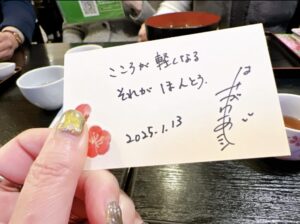 こころが 軽くなる
それが ほんとう.
2025.1.13